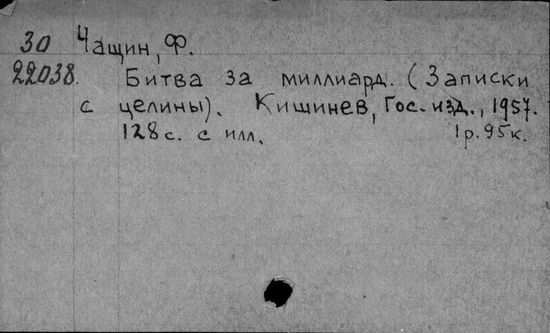 30 Чащин, Ф.
22038. Битва за миллиард. (Записки
с целины). Кишинев, Гос. изд., 1957.
128 с. с илл. 1 р. 95 к.